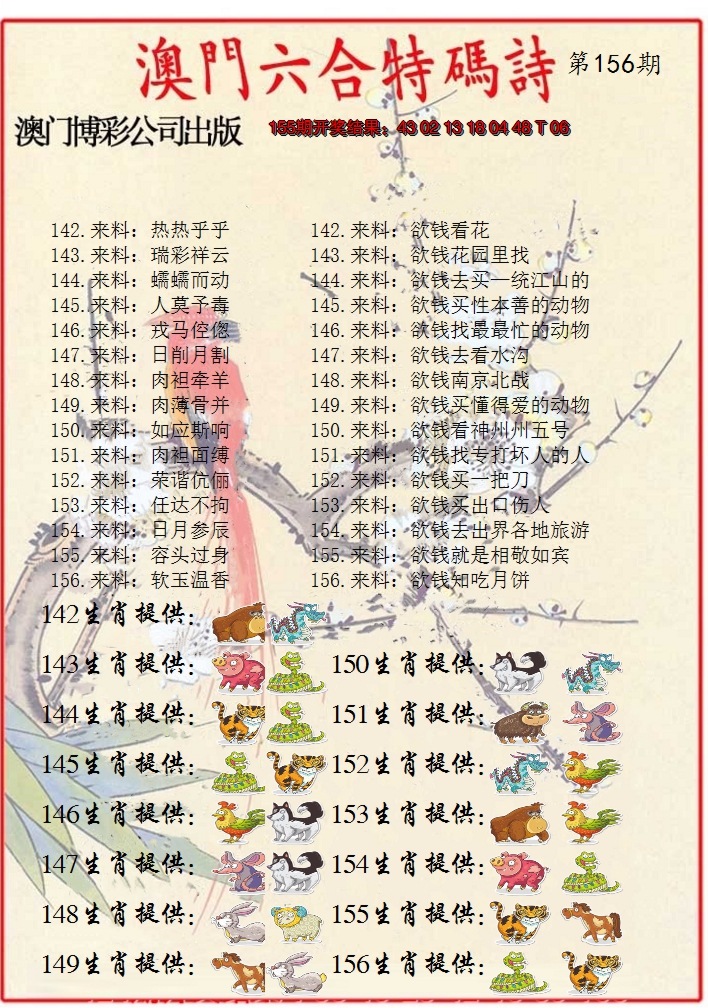 澳門六合特碼詩 第156期
澳门博彩公司出版 155期开奖结果：43 02 13 18 04 48 T 06
142.来料：热热乎乎 142.来料：欲钱看花
143.来料：瑞彩祥云 143.来料：欲钱花园里找
144.来料：蠕蠕而动 144.来料：欲钱去买一统江山的
145.来料：人莫予毒 145.来料：欲钱买性本善的动物
146.来料：戎马倥偬 146.来料：欲钱找最最忙的动物
147.来料：日削月割 147.来料：欲钱去看水沟
148.来料：肉袒牵羊 148.来料：欲钱南京北战
149.来料：肉薄骨并 149.来料：欲钱买懂得爱的动物
150.来料：如应斯响 150.来料：欲钱看神州州五号
151.来料：肉袒面缚 151.来料：欲钱找专打坏人的人
152.来料：荣谐伉俪 152.来料：欲钱买一把刀
153.来料：任达不拘 153.来料：欲钱买出口伤人
154.来料：日月参辰 154.来料：欲钱去出界各地旅游
155.来料：容头过身 155.来料：欲钱就是相敬如宾
156.来料：软玉温香 156.来料：欲钱知吃月饼
142生肖提供：
143生肖提供： 150生肖提供：
144生肖提供： 151生肖提供：
145生肖提供： 152生肖提供：
146生肖提供： 153生肖提供：
147生肖提供： 154生肖提供：
148生肖提供： 155生肖提供：
149生肖提供： 156生肖提供：